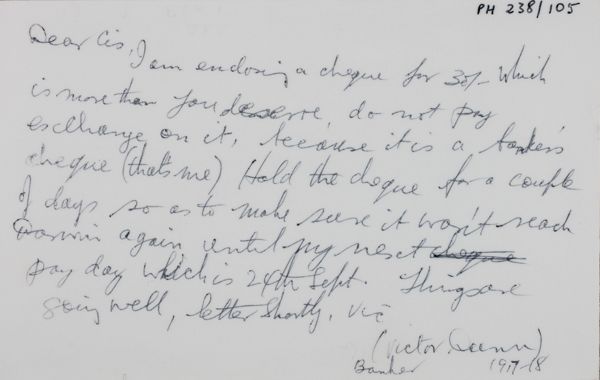 PH 238/105
Dear Cis,
I am enclosing a cheque for 30/- which
is more than you deserve, do not pay
esclhange on it, because it is a banker's
cheque (that's me) Hold the cheque for a couple
of days so as to make sure it won't reach
Darwin again until my next cheque
pay day which is 24th Sept. Things are
going well, letter shortly. Vic
(Victor Dunn)
Banker 1917-18